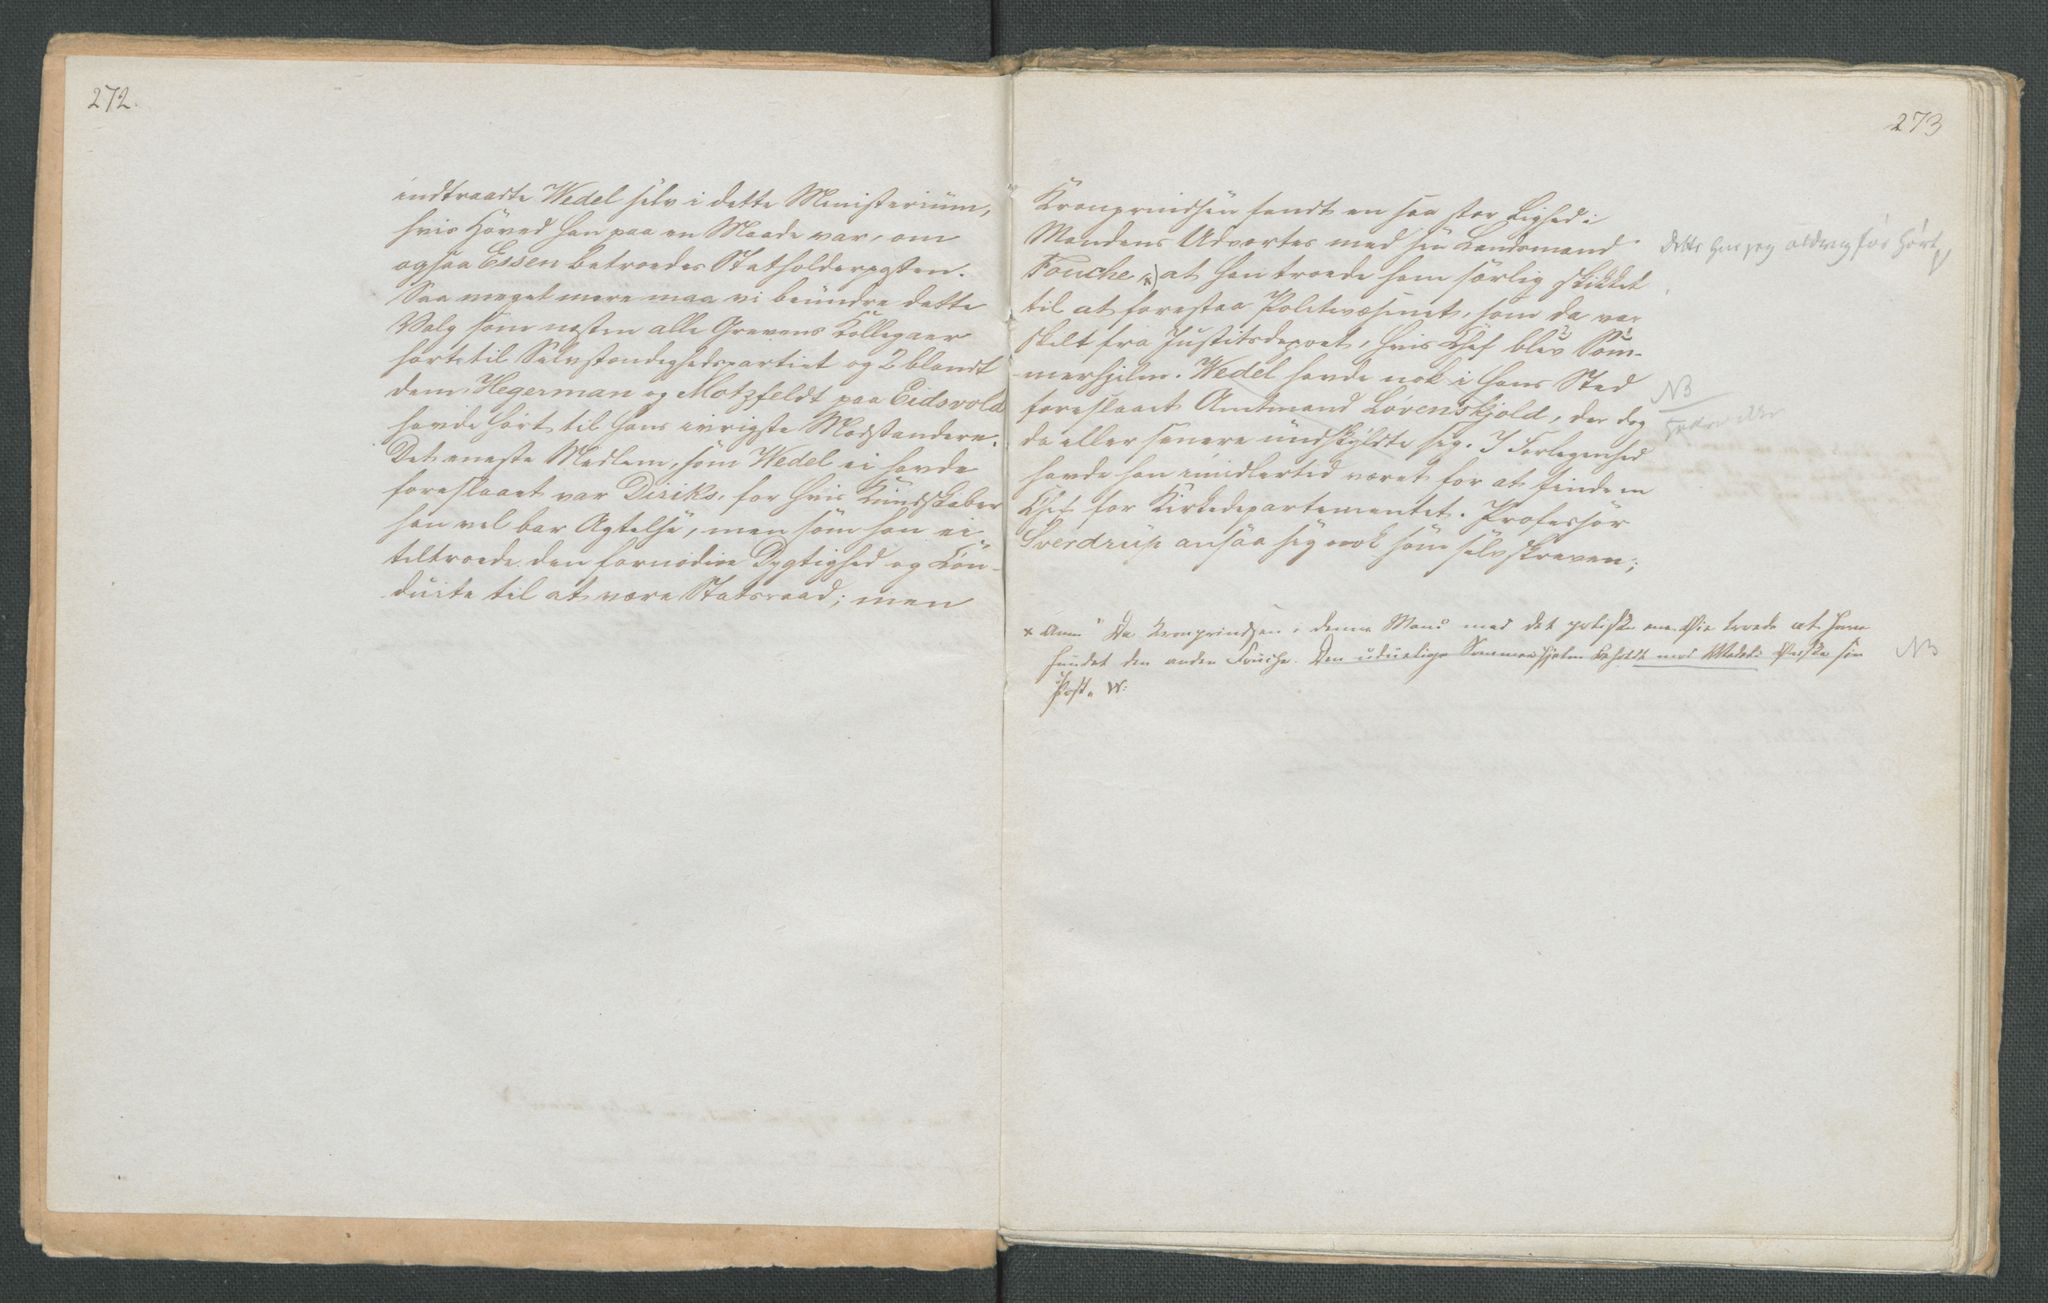 272.
indtraadte Wedel selv i dette Ministerium,
hvis Hoved han paa en Maade var, om
ogsaa Essen betroedes Statholderposten.
Saa meget mere maa vi beundre dette
Valg som næsten alle Grevens Kollegaer
hørte til Selvstændighedspartiet og 2 blandt
dem Hegerman og Motzfeldt paa Eidsvold
havde hørt til hans ivrigste Modstandere.
Det eneste Medlem, som Wedel ei havde
foreslaaet var Diriks, for hvis Kundskaber
han vel bar Agtelse, men som han ei
tiltroede den fornødne Dygtighed og Con-
duite til at være Statsraad; men
273
Kronprindsen fandt en saa stor Lighed i
Mandens Udvortes med sin Landsmand
Fouche x) at han troede ham særlig skikket
til at forestaa Politivæsenet, som da var
skilt fra Justitsdepoet, hvis Chef blev Som-
merhjelm. Wedel havde nok i hans Sted
foreslaaet Amtmand Løvenskjold, der dog
da eller senere undskyldte seg. I Forlegenhed
havde han imidlertid været for at finde en
Chef for Kirkedepartementet. Professor
Sverdrup ansaa sig nok som selvskreven;
Dette har jeg aldrig før hørt
NB
NB
x Anm " Da Kronprindsen i denne Mand med det polske ene Øie troede at have
fundet den anden Fouche. Den uduelige Sommerhjelm beholdt mod Wedels Ønske sin
Post " W: